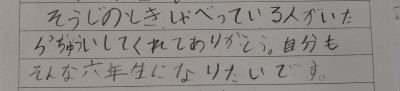 そうじのとき、しゃべっている人がいた
らちゅういしてくれてありがとう。自分も
そんな六年生になりたいです。